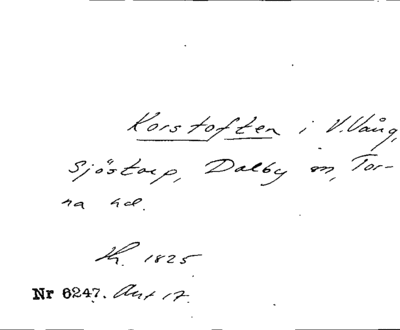 Korstoften i V. Vång,
Sjöstorp, Dalby sn, Tor-
na hd.
1825
Nr 6247. Akt 17.